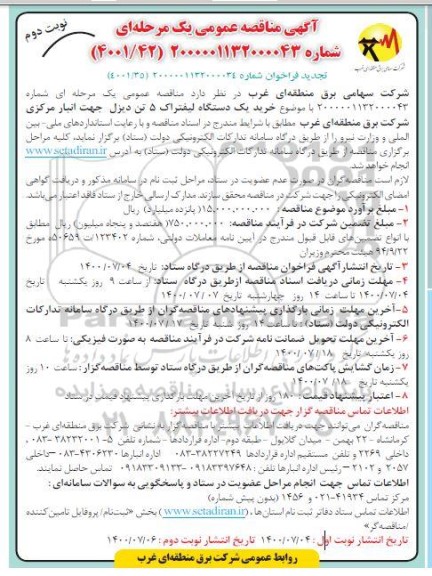 آگهی مناقصه عمومی یک مرحله‌ای
نوبت دوم
شماره ۲۰۰۰۰۰۱۱۳۲۰۰۰۰۴۳ (۴۰۰۱/۴۲)
شرکت سهامی برق منطقه‌ای غرب
تجدید فراخوان شماره ۲۰۰۰۰۰۱۱۳۲۰۰۰۰۳۴ (۴۰۰۱/۳۵)
شرکت سهامی برق منطقه‌ای غرب در نظر دارد مناقصه عمومی یک مرحله ای شماره
۲۰۰۰۰۰۱۱۳۲۰۰۰۰۴۳ با موضوع خرید یک دستگاه لیفتراک ۵ تن دیزل جهت انبار مرکزی
شرکت برق منطقه‌ای غرب مطابق با شرایط مندرج در اسناد مناقصه و با رعایت استانداردهای ملی- بین
المللی و وزارت نیرو را از طریق درگاه سامانه تدارکات الکترونیکی دولت (ستاد) برگزار نماید، کلیه مراحل
برگزاری مناقصه از طریق درگاه سامانه تدارکات الکترونیکی دولت (ستاد) به آدرس www.setadiran.ir
انجام خواهد شد.
لازم است مناقصه‌گران در صورت عدم عضویت در ستاد، مراحل ثبت نام در سامانه مذکور و دریافت گواهی
امضای الکترونیکی را جهت شرکت در مناقصه محقق سازند. مدارک ارسالی خارج از ستاد فاقد اعتبار می‌باشد.
۱- مبلغ برآورد موضوع مناقصه : ۱۵،۰۰۰،۰۰۰،۰۰۰ (پانزده میلیارد) ریال
۲- مبلغ تضمین شرکت در فرآیند مناقصه: ۷۵۰،۰۰۰،۰۰۰ (هفتصد و پنجاه میلیون) ریال مطابق
با انواع تضمین‌های قابل قبول مندرج در آیین نامه معاملات دولتی، شماره ۱۲۳۴۰۲/ت ۵۰۶۵۹ه مورخ
۹۴/۹/۲۲ هیئت محترم وزیران
۳- تاریخ انتشار آگهی فراخوان مناقصه از طریق درگاه ستاد: تاریخ ۱۴۰۰/۰۷/۰۴
۴- مهلت زمانی دریافت اسناد مناقصه از طریق درگاه ستاد: از ساعت ۹ روز یکشنبه تاریخ
۱۴۰۰/۰۷/۰۴ تا ساعت ۱۴ روز چهارشنبه تاریخ ۱۴۰۰/۰۷/۰۷
۵- آخرین مهلت زمانی بارگذاری پیشنهادهای مناقصه‌گران از طریق درگاه سامانه تدارکات
الکترونیکی دولت (ستاد): ساعت ۱۴ روز شنبه تاریخ ۱۴۰۰/۰۷/۱۷
۶- آخرین مهلت تحویل ضمانت نامه شرکت در فرآیند مناقصه به صورت فیزیکی: تا ساعت ۸
روز یکشنبه تاریخ ۱۴۰۰/۰۷/۱۸
۷- زمان گشایش پاکت‌های مناقصه‌گران از طریق درگاه ستاد توسط مناقصه‌گزار: ساعت ۱۰ روز
یکشنبه تاریخ ۱۴۰۰/۰۷/۱۸
۸- اعتبار پیشنهاد قیمت: ۱۸۰ روز از تاریخ آخرین مهلت بارگذاری پیشنهاد قیمت در ستاد
اطلاعات تماس مناقصه گزار جهت دریافت اطلاعات بیشتر:
مناقصه گران می‌توانند جهت دریافت اطلاعات بیشتر با مناقصه‌گزار به نشانی شرکت برق منطقه‌ای غرب -
کرمانشاه - ۲۲ بهمن - میدان گلایول - طبقه دوم- اداره قراردادها - شماره تلفن ۵-۳۸۲۳۲۰۰۱-۰۸۳
داخلی ۲۲۶۹ و تلفن مستقیم اداره قراردادها ۳۸۲۲۷۲۴۹-۰۸۳ اداره انبارها ۴۳۰۶۲۳۰-۰۸۳ داخلی
۲۰۵۷ و ۲۱۰۲ – رئیس اداره انبارها تلفن: ۰۹۱۸۳۳۹۷۶۴۸ - ۰۹۱۸۳۳۰۹۱۳۳ تماس حاصل نمایند.
اطلاعات تماس جهت انجام مراحل عضویت در ستاد و پاسخگویی به سوالات سامانه‌ای :
مرکز تماس ۴۱۹۳۴-۰۲۱ و ۱۴۵۶ (بدون پیش شماره)
اطلاعات تماس ستاد دفاتر ثبت نام استان‌ها ، (www.setadiran.ir) بخش «ثبت‌نام/ پروفایل تامین‌کننده
/مناقصه‌گر»
تاریخ انتشار نوبت اول : ۱۴۰۰/۰۷/۰۴ تاریخ انتشار نوبت دوم : ۱۴۰۰/۰۷/۰۶
روابط عمومی شرکت برق منطقه‌ای غرب